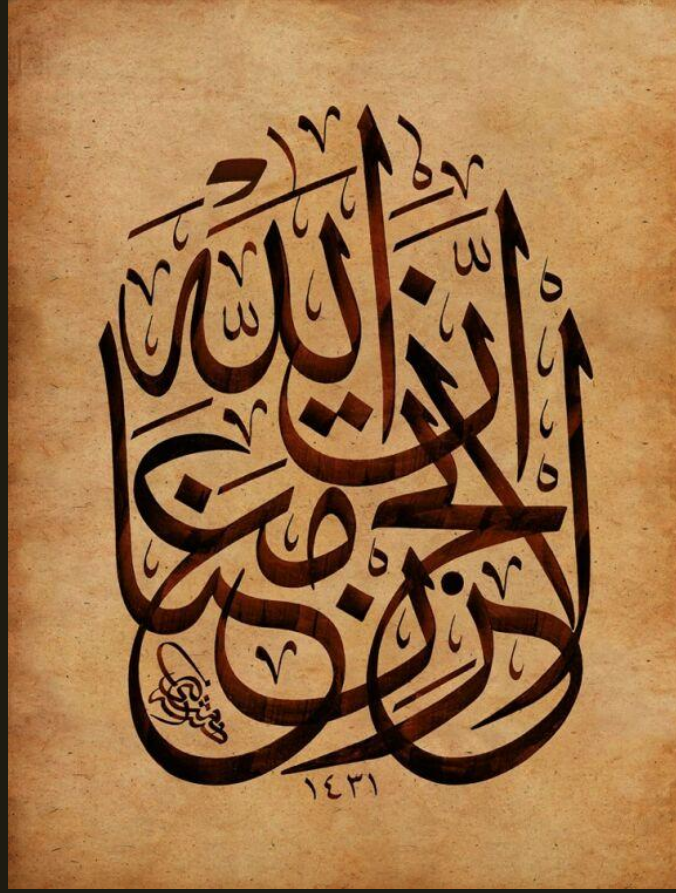 لَا تَحْزَنْ إِنَّ اللَّهَ مَعَنَا
١٤٣١